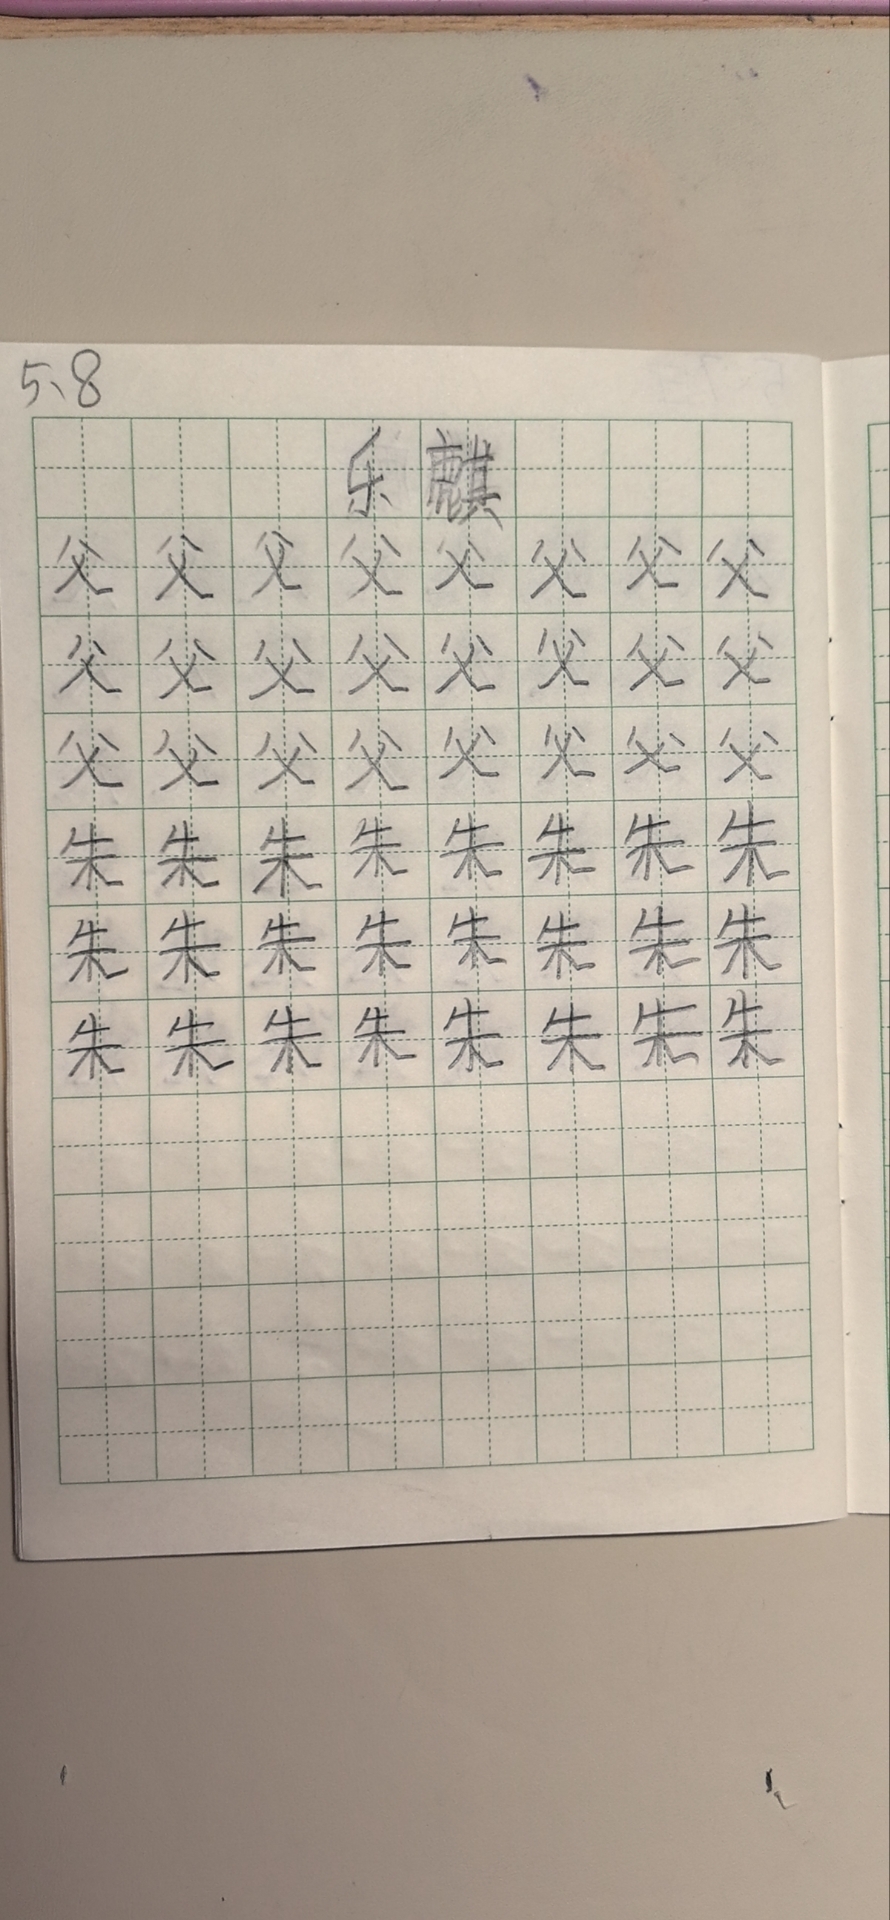 5、8
乐麒
父父父父父父父父
父父父父父父父父
父父父父父父父父
朱朱朱朱朱朱朱朱
朱朱朱朱朱朱朱朱
朱朱朱朱朱朱朱朱